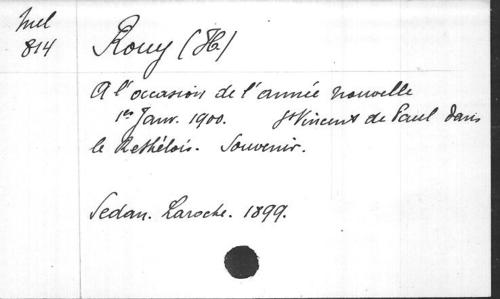 Mel
814
Rouy (H)
A l'occasion de l'année nouvelle
1er Janv. 1900. St Vincent de Paul dans
le Rethélois. Souvenir.
Sedan. Laroche. 1899.